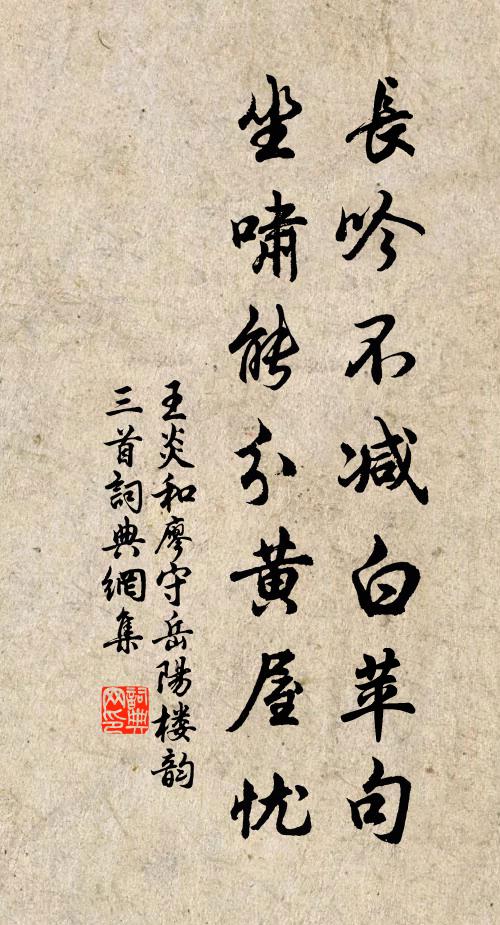 長吟不減白苹句
坐嘯能分黄屋忧
王炎和廖守岳陽楼韵
三首詞典網集
詞典
网印